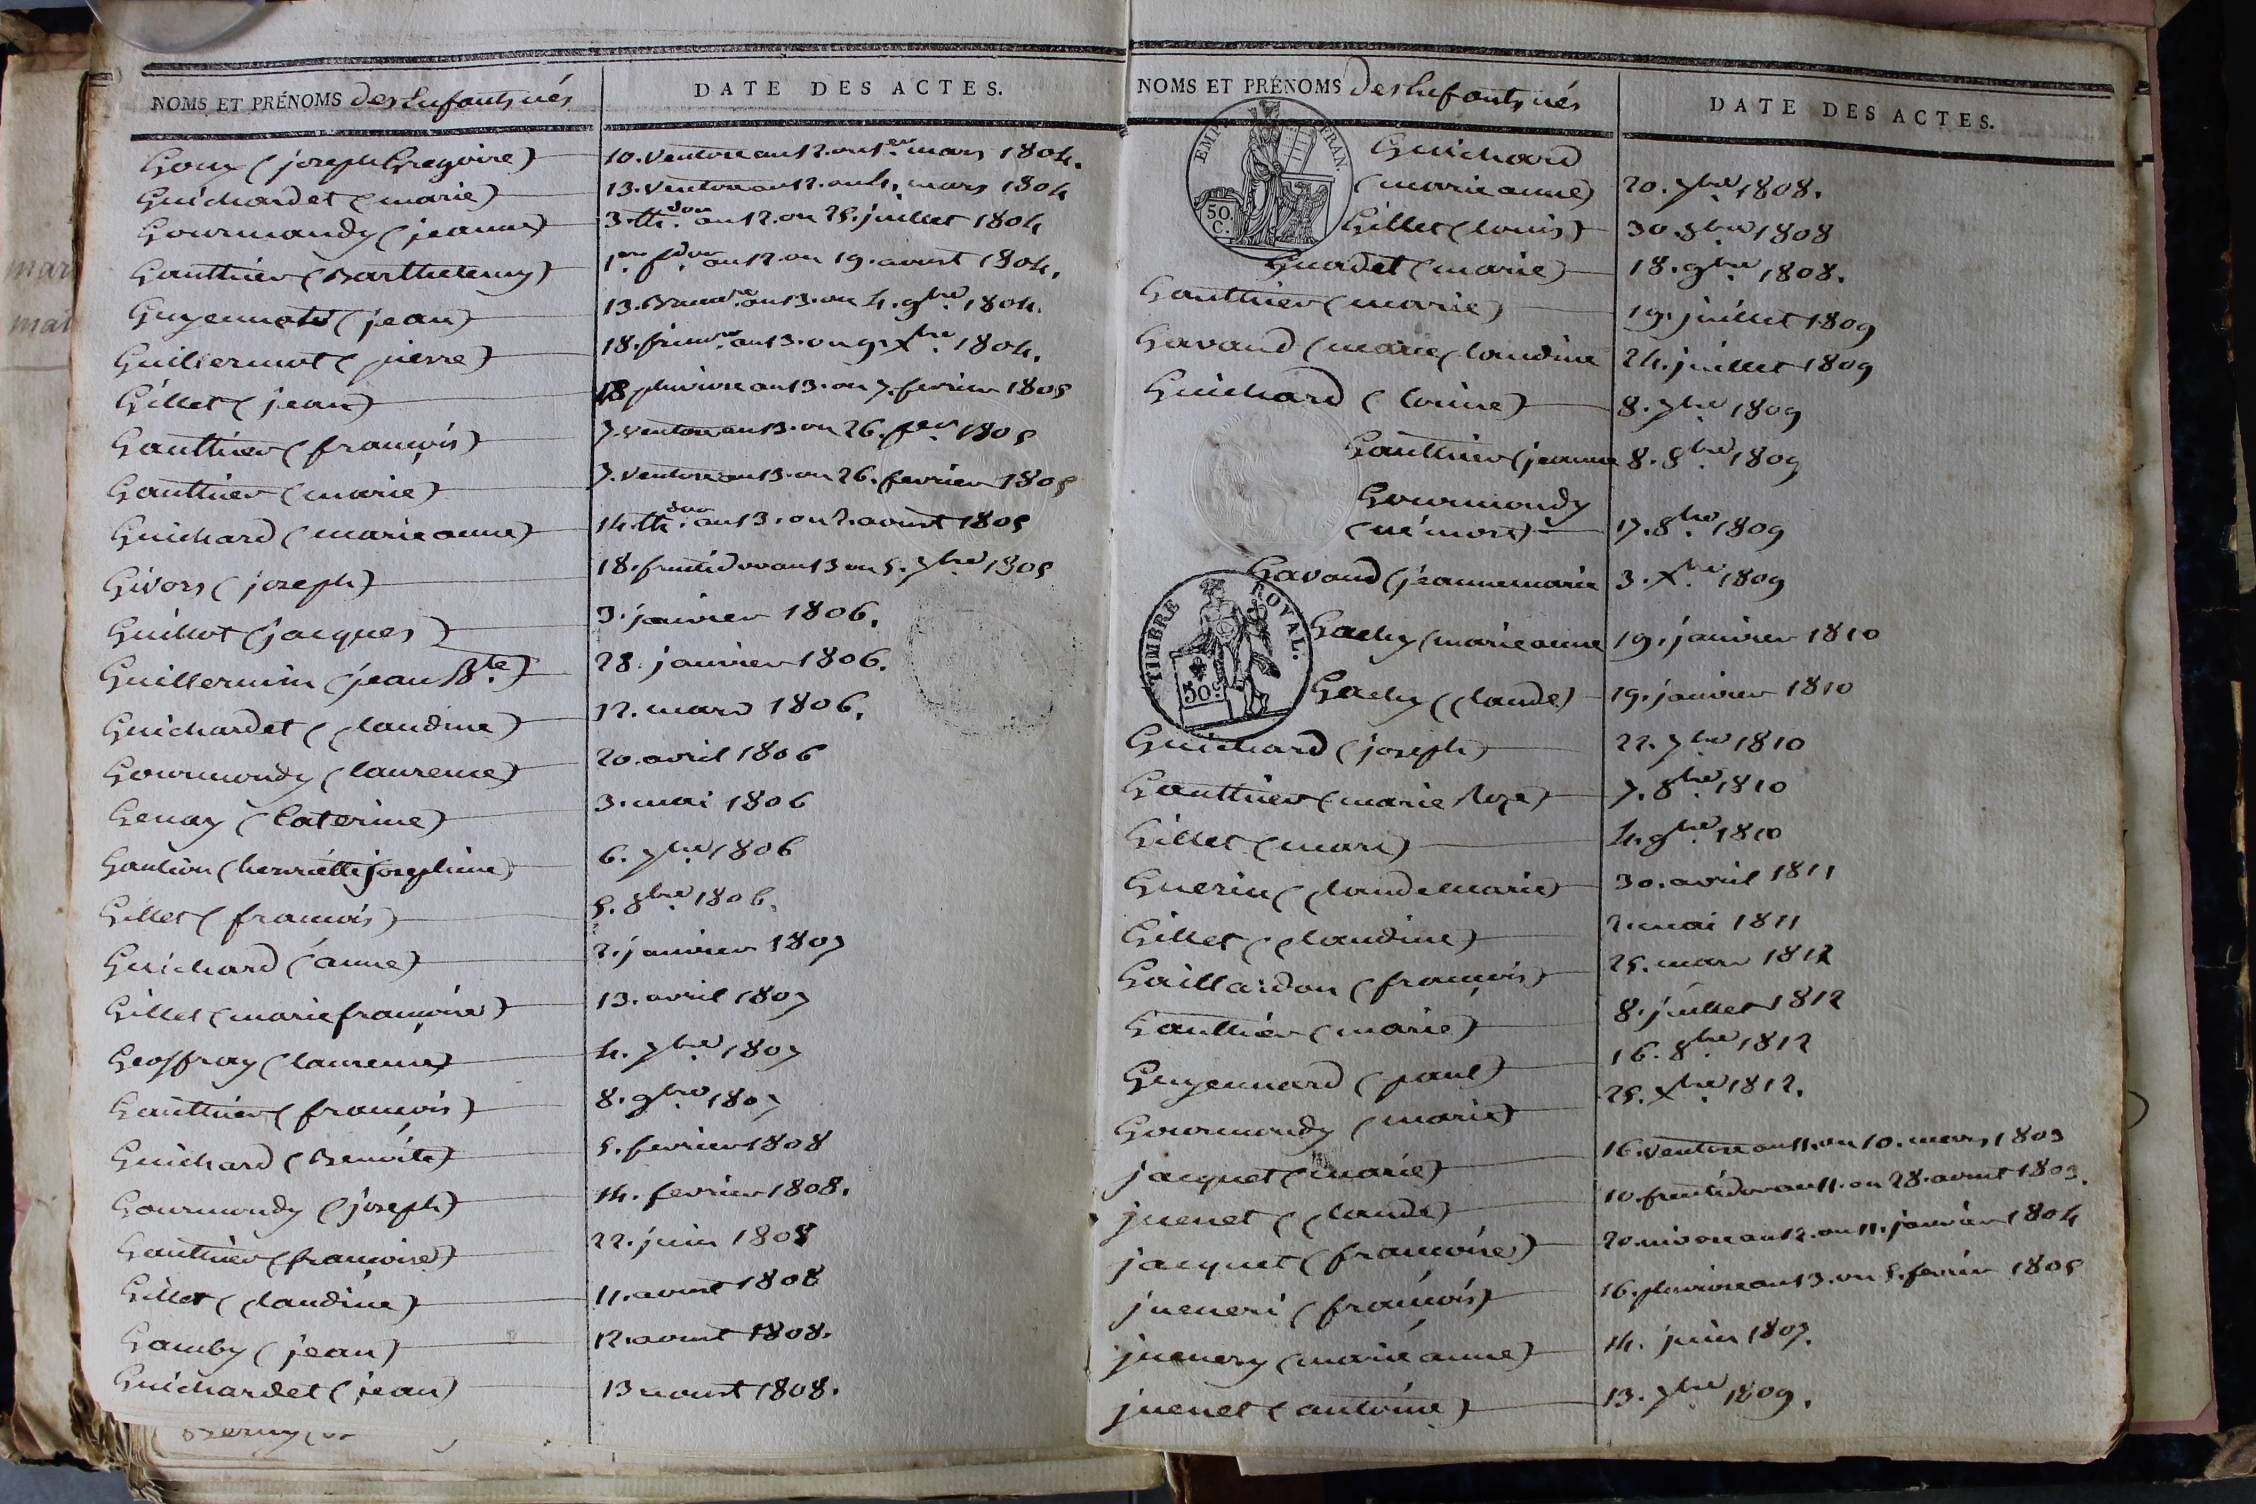 NOMS ET PRÉNOMS des Enfants nés
DATE DES ACTES.
Goux (joseph Gregoire) 10. ventose an 12. ou 1er mars 1804.
Guichardet (marie) 13. ventose an 12. ou 4. mars 1804
Gourmandy (jeanne) 3. th.dor an 12. ou 25. juillet 1804
Gauthier (Barthelemy) 1er f.dor an 12. ou 19. aoust 1804.
Guyennot (jean) 13. Brum.re an 13. ou 4. 9bre 1804.
Guillermot (pierre) 18. frim.re an 13. ou 9. Xbre 1804.
Gillet (jean) 18 pluviose an 13. ou 7. fevrier 1805
Gauthier (françois) 7. ventose an 13. ou 26. fev 1805
Gauthier (marie) 7. ventose an 13. ou 26. fevrier 1805
Guichard (marie anne) 14. th.dor an 13. ou 2. aoust 1805
Givors (joseph) 18. fructidor an 13 ou 5. 7bre 1805
Guillot (jacques) 3. janvier 1806.
Guillermin (jean Bte) 28. janvier 1806.
Guichardet (claudine) 12. mars 1806.
Gourmondy (laurence) 20. avril 1806
Genay (Caterine) 3. mai 1806
(henriette josephine) 6. 7bre 1806
Gillet (françois) 5. 8bre 1806.
Guichard (anne) 2. janvier 1807
Gillet (marie françoise) 13. avril 1807
Geoffray (laurence) 4. 7bre 1807
Gauthier (françois) 8. 9bre 1807
Guichard (Benoite) 5. fevrier 1808
Gourmondy (joseph) 14. fevrier 1808.
Gauthier (françoise) 22. juin 1808
Gillet (claudine) 11. aoust 1808
Gamby (jean) 12. aoust 1808.
Guichardet (jean) 13 aoust 1808.
NOMS ET PRÉNOMS des Enfants nés
DATE DES ACTES.
EMP. FRAN.
50.
C.
Guichard
(marie anne) 20. 7bre 1808.
Gillet (louis) 30. 8bre 1808
Guadet (marie) 18. 9bre 1808.
Gauthier (marie) 19. juillet 1809
Gavand (marie claudine 24. juillet 1809
Guichard (louise) 8. 7bre 1809
Gauthier (jeanne 8. 8bre 1809
Gourmondy
(né mort) 17. 8bre 1809
Gavand (jeanne marie 3. Xbre 1809
TIMBRE ROYAL.
50c
Gachy (marie anne 19. janvier 1810
Gachy (claude) 19. janvier 1810
Guichard (joseph) 22. 7bre 1810
Gauthier (marie Roze) 7. 8bre 1810
Gillet (marc) 4. 9bre 1810
Guerin (claude marie) 30. avril 1811
Gillet (claudine) 2. mai 1811
Gaillardon (françois) 25. mars 1812
Gauthier (marie) 8. juillet 1812
Guyennard (paul) 16. 8bre 1812
Gourmondy (marie) 25. Xbre 1812.
jacquet (marie) 16. ventose an 11. ou 10. mars 1803
juenet (claude) 10. fructidor an 11. ou 28. aoust 1803.
jacquet (françoise) 20. nivose an 12. ou 11. janvier 1804
jueneri (françois) 16. pluviose an 13. ou 5. fevrier 1805
juenery (marie anne) 14. juin 1807.
juenet (antoine) 13. 7bre 1809.